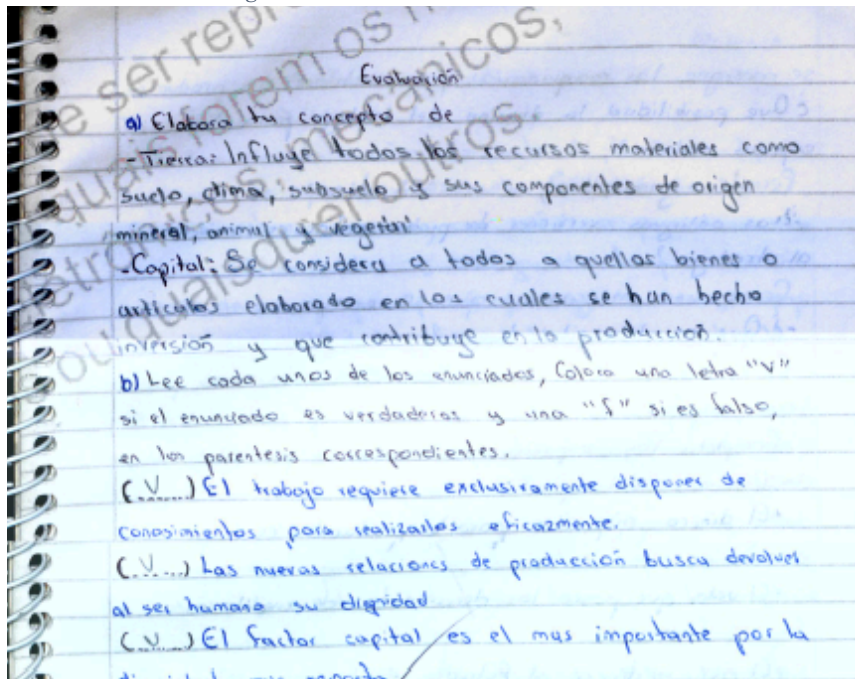 Evaluación
a) Elabora tu concepto de
-Tierra: Influye todos los recursos materiales como
suelo, clima, subsuelo y sus componentes de origen
mineral, animal y vegetal
-Capital: Se considera a todos a quellos bienes o
articulos elaborado en los cuales se han hecho
inversión y que contribuye en la producción.
b) Lee cada unos de los enunciados, Coloca una letra "V"
si el enunciado es verdaderos y una "f" si es falso,
en los parentesis correspondientes.
(..V....) El trabajo requiere exclusivamente disponer de
conosimientos para realizarlos eficazmente.
(..V....) Las nuevas relaciones de producción busca devolver
al ser humano su dignidad
(..V....) El factor capital es el mas importante por la